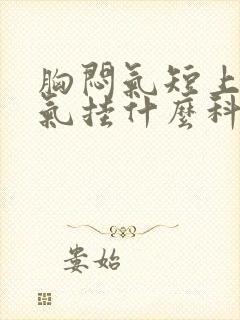 胸悶氣短上
氣掛什麼科
娄始